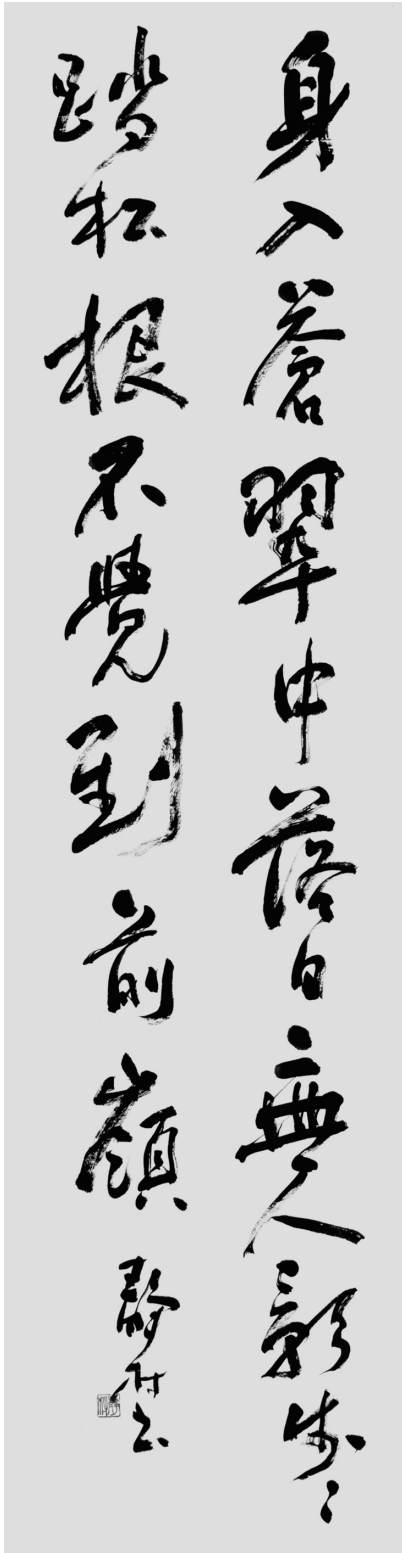 身入蒼翠中落日無人影步〻
踏松根不覺到前嶺
静村書